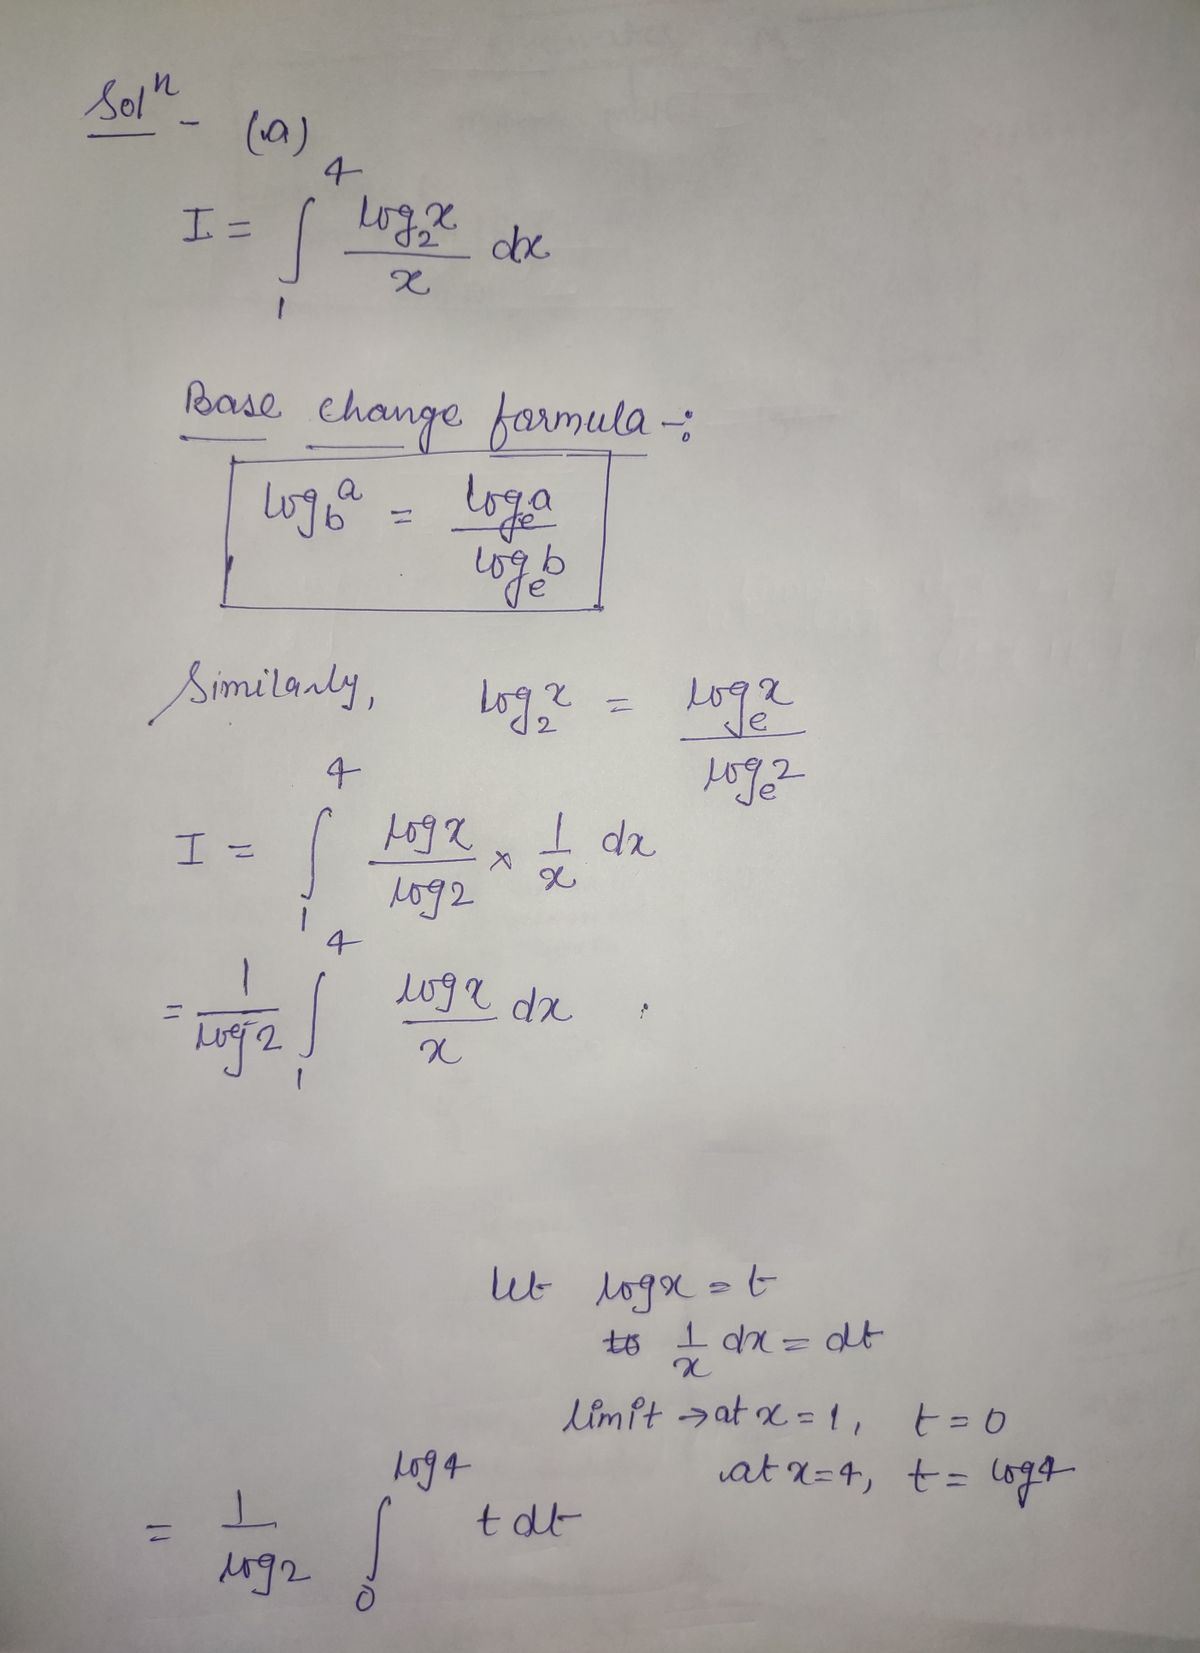 Solⁿ - (a)
I = ∫₁⁴ log₂x / x dx
Base change formula -:
log_b a = log_e a / log_e b
Similarly, log₂x = log_e x / log_e 2
I = ∫₁⁴ logx / log2 × 1/x dx
= 1/log2 ∫₁⁴ logx / x dx
let logx = t
1/x dx = dt
limit → at x = 1, t = 0
at x = 4, t = log4
= 1/log2 ∫₀^log4 t dt